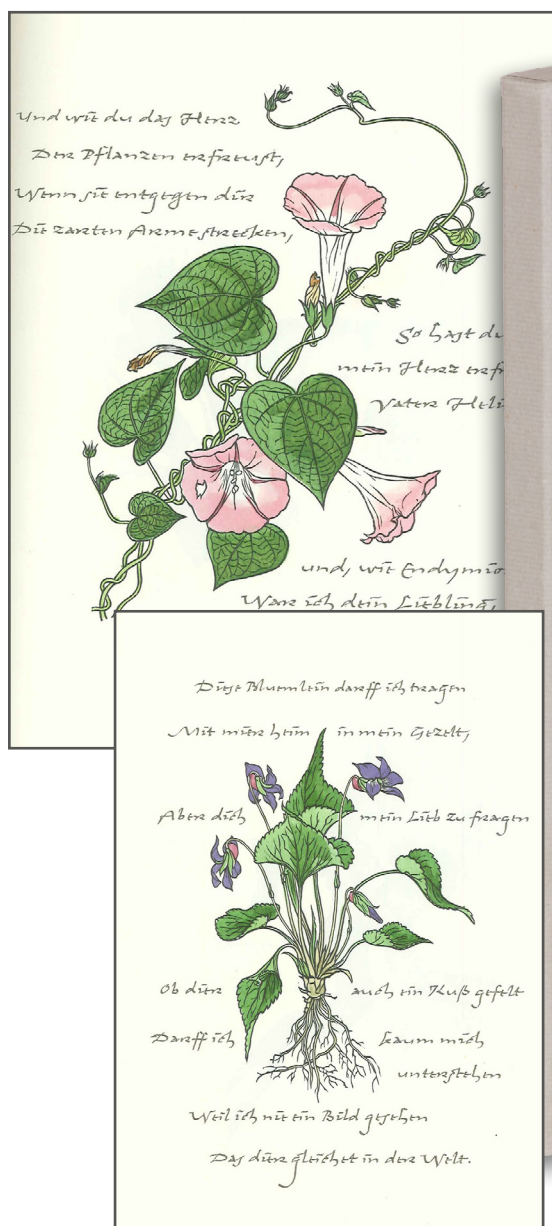 Und wie du das Herz
Der Pflanzen erfreust,
Wenn sie entgegen dir
Die zarten Arme strecken,
So hast du
mein Herz erfr
Vater Heli
und, wie Endymio
War ich dein Liebling,
Diese Bluemlein darff ich tragen
Mit mier heim in mein Gezelt,
Aber dich mein Lieb zu fragen
Ob dier auch ein Kuß gefelt
Darff ich kaum mich
unterstehen
Weil ich nie ein Bild gesehen
Das dier gleichet in der Welt.